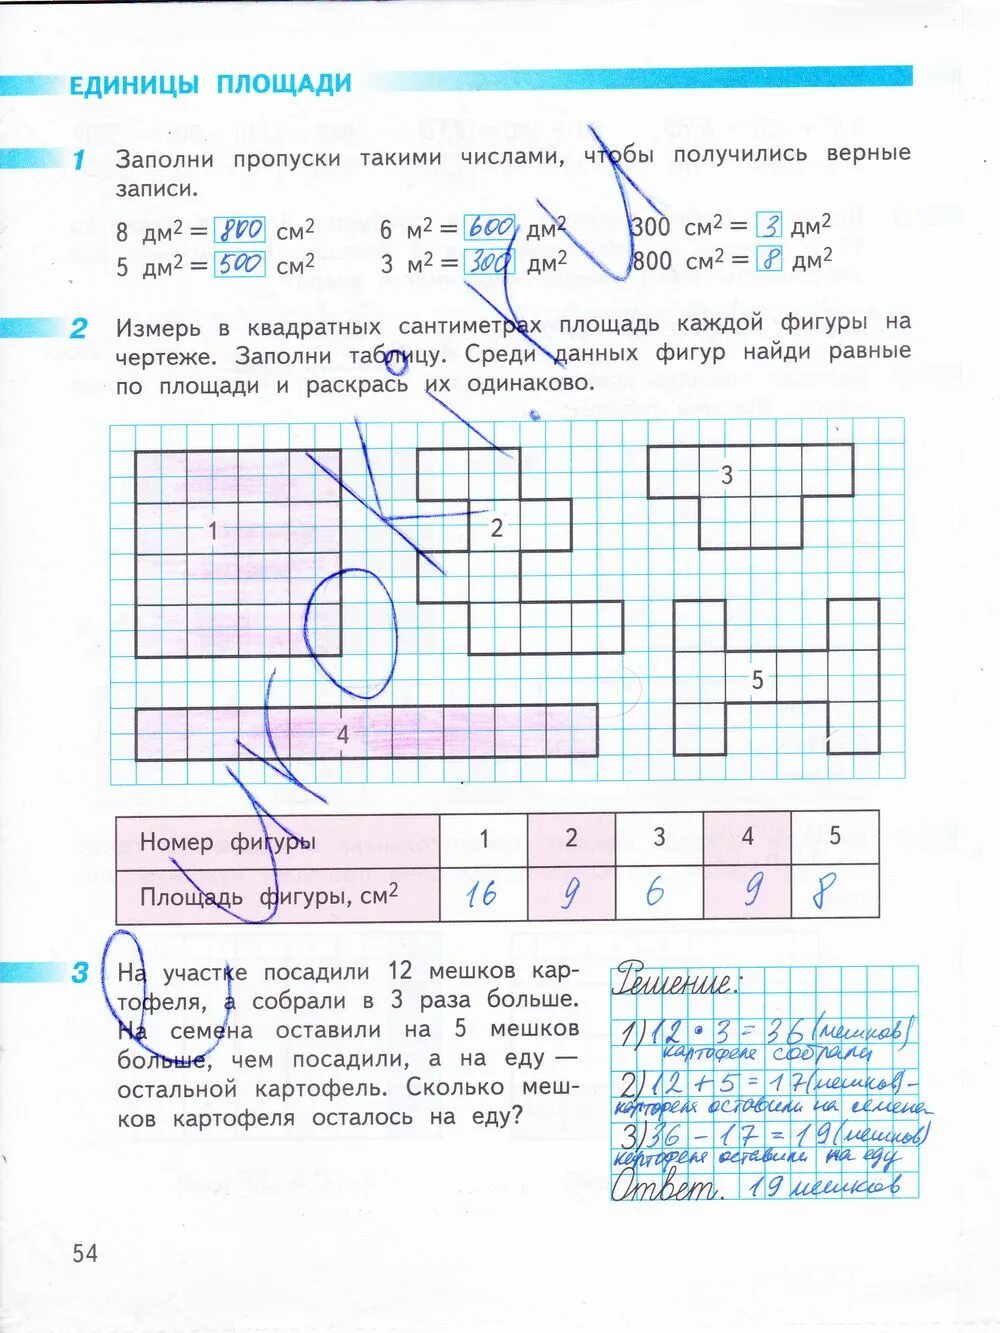 ЕДИНИЦЫ ПЛОЩАДИ
1 Заполни пропуски такими числами, чтобы получились верные
записи.
8 дм² = 800 см² 6 м² = 600 дм² 300 см² = 3 дм²
5 дм² = 500 см² 3 м² = 300 дм² 800 см² = 8 дм²
2 Измерь в квадратных сантиметрах площадь каждой фигуры на
чертеже. Заполни таблицу. Среди данных фигур найди равные
по площади и раскрась их одинаково.
1
2
3
4
5
Номер фигуры 1 2 3 4 5
Площадь фигуры, см² 16 9 6 9 8
3 На участке посадили 12 мешков кар-
тофеля, а собрали в 3 раза больше.
На семена оставили на 5 мешков
больше, чем посадили, а на еду —
остальной картофель. Сколько меш-
ков картофеля осталось на еду?
Решение:
1) 12 • 3 = 36 (мешков)
картофеля собрали
2) 12 + 5 = 17 (мешков) –
картофеля оставили на семена
3) 36 – 17 = 19 (мешков)
картофеля оставили на еду
Ответ. 19 мешков
54